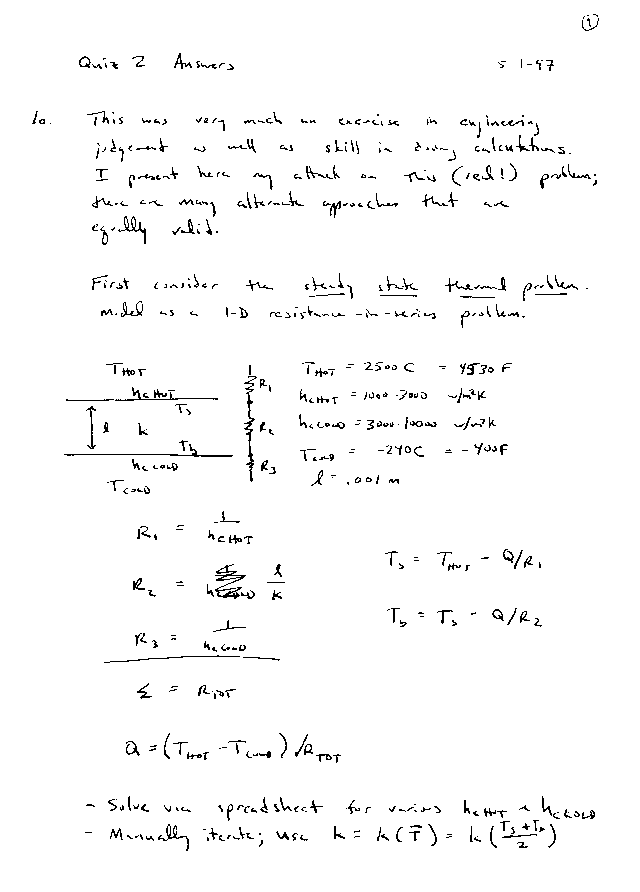 1
Quiz 2 Answers 5-1-97
1a. This was very much an exercise in engineering
judgement as well as skill in doing calculations.
I present here my attack on this (real!) problem;
there are many alternate approaches that are
equally valid.
First consider the steady state thermal problem.
Model as a 1-D resistance-in-series problem.
T_HOT
h_cHOT
T_s
l k
T_b
h_cCOLD
T_COLD
R_1
R_2
R_3
T_HOT = 2500 C = 4530 F
h_cHOT = 1000-3000 w/m²K
h_cCOLD = 3000-10000 w/m²K
T_COLD = -240C = -400F
l = .001 m
R_1 = 1/h_cHOT
R_2 = l/k
R_3 = 1/h_cCOLD
Σ = R_TOT
T_s = T_HOT - Q/R_1
T_b = T_s - Q/R_2
Q = (T_HOT - T_COLD)/R_TOT
- Solve via spreadsheet for various h_cHOT & h_cCOLD
- Manually iterate; use k = k(T̄) = k((T_s+T_b)/2)